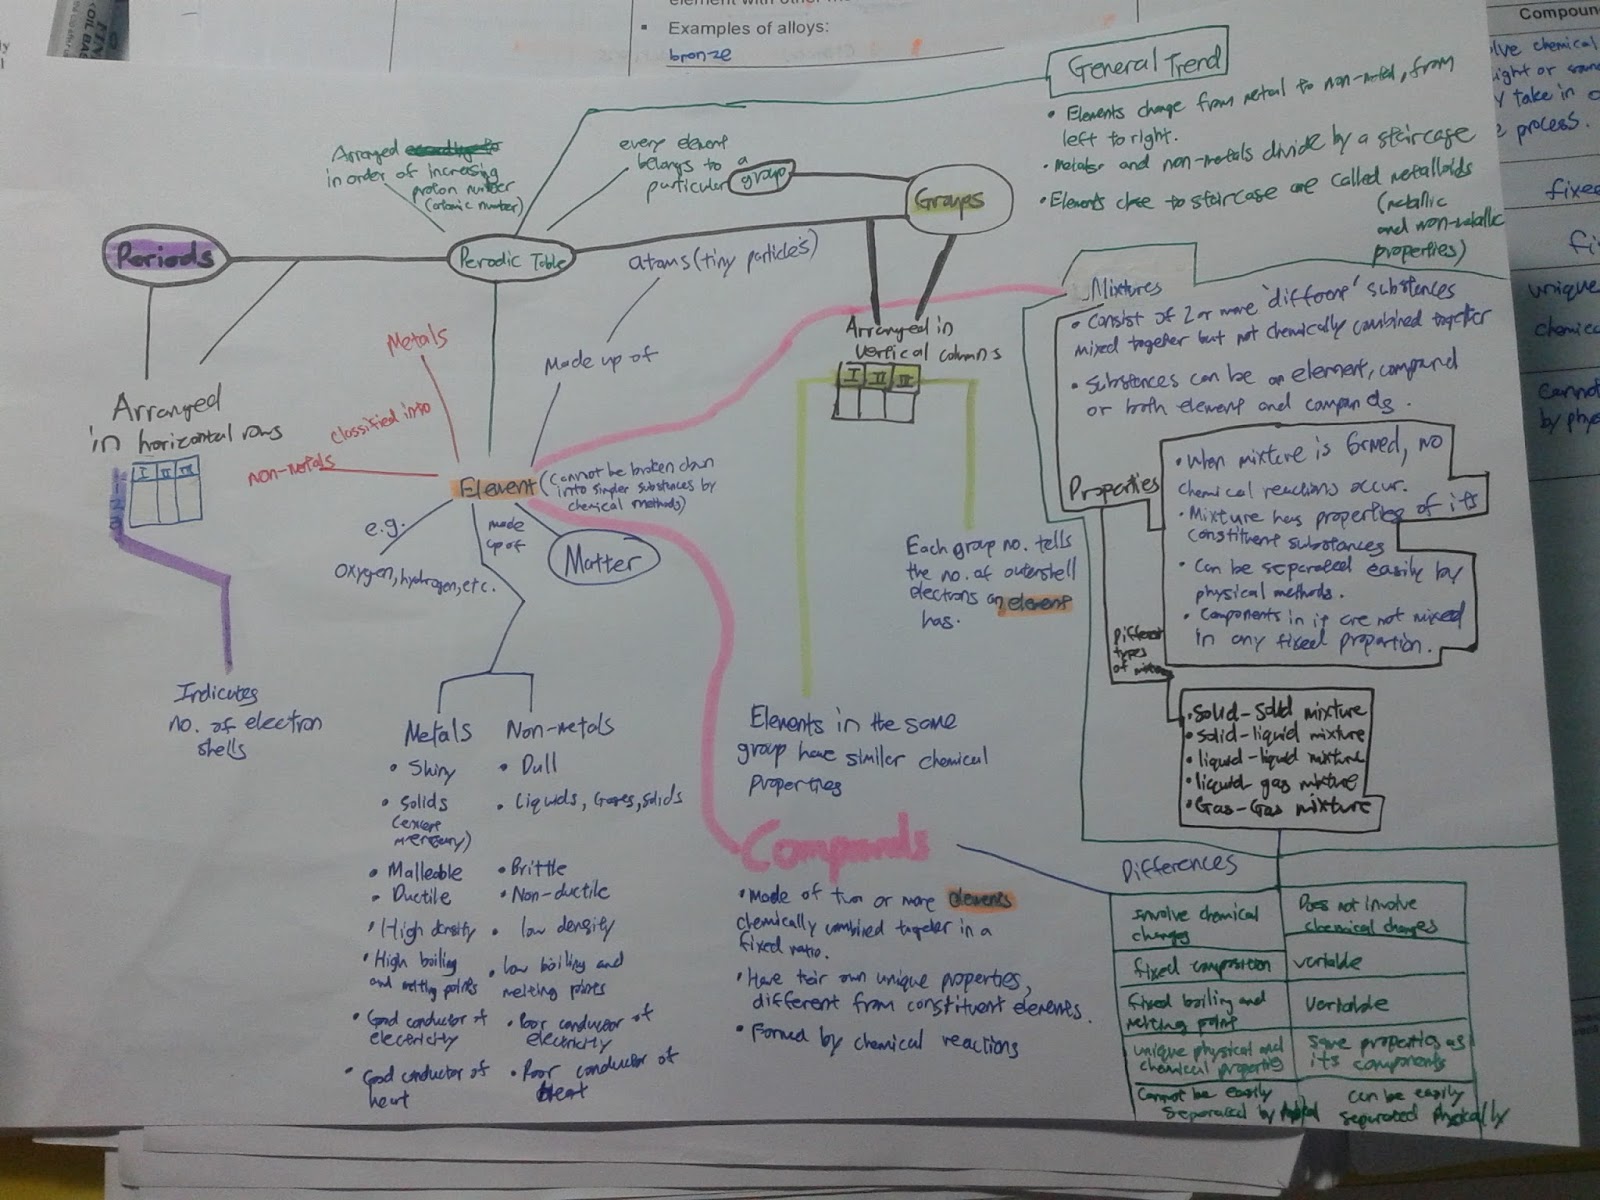 Examples of alloys:
bronze
Compoun
General Trend
• Elements change from metal to non-metal, from
left to right.
• metals and non-metals divide by a staircase
• Elements close to staircase are called metalloids
(metallic
and non-metallic
properties)
Arranged
in order of increasing
proton number
(atomic number)
every element
belongs to a
particular group
Groups
Periods
Perodic Table
atoms (tiny particles)
Made up of
Metals
classified into
non-metals
Arranged
in horizontal rows
I II III
Indicates
no. of electron
shells
Element (Cannot be broken down
into simpler substances by
chemical methods)
e.g.
oxygen, hydrogen, etc.
made
up of
Matter
Metals
• Shiny
• Solids
(except
mercury)
• Malleable
• Ductile
• High density
• High boiling
and melting points
• Good conductor of
electricity
• Good conductor of
heat
Non-metals
• Dull
• Liquids, Gases, solids
• Brittle
• Non-ductile
• low density
• low boiling and
melting points
• Poor conductor of
electricity
• Poor conductor of
heat
Arranged in
vertical columns
I II III
Each group no. tells
the no. of outershell
electrons an element
has.
Elements in the same
group have similar chemical
properties
Compounds
• Made of two or more elements
chemically combined together in a
fixed ratio.
• Have their own unique properties,
different from constituent elements.
• Formed by chemical reactions
Mixtures
• Consist of 2 or more 'different' substances
mixed together but not chemically combined together
• Substances can be an element, compound
or both element and compounds.
Properties
• When mixture is formed, no
chemical reactions occur.
• Mixture has properties of its
constituent substances
• Can be separated easily by
physical methods.
• Components in it are not mixed
in any fixed proportion.
Different
types
of mixture
• Solid-solid mixture
• solid-liquid mixture
• liquid-liquid mixture
• liquid-gas mixture
• Gas-Gas mixture
Differences
Involve chemical
changes
Does not involve
chemical changes
fixed composition
variable
fixed boiling and
melting point
variable
unique physical and
chemical properties
same properties as
its components
Cannot be easily
separated by
can be easily
separated physically
chemical
ight or
take in
process.
fixe
fi
unique
chemic
Cannot
by phys